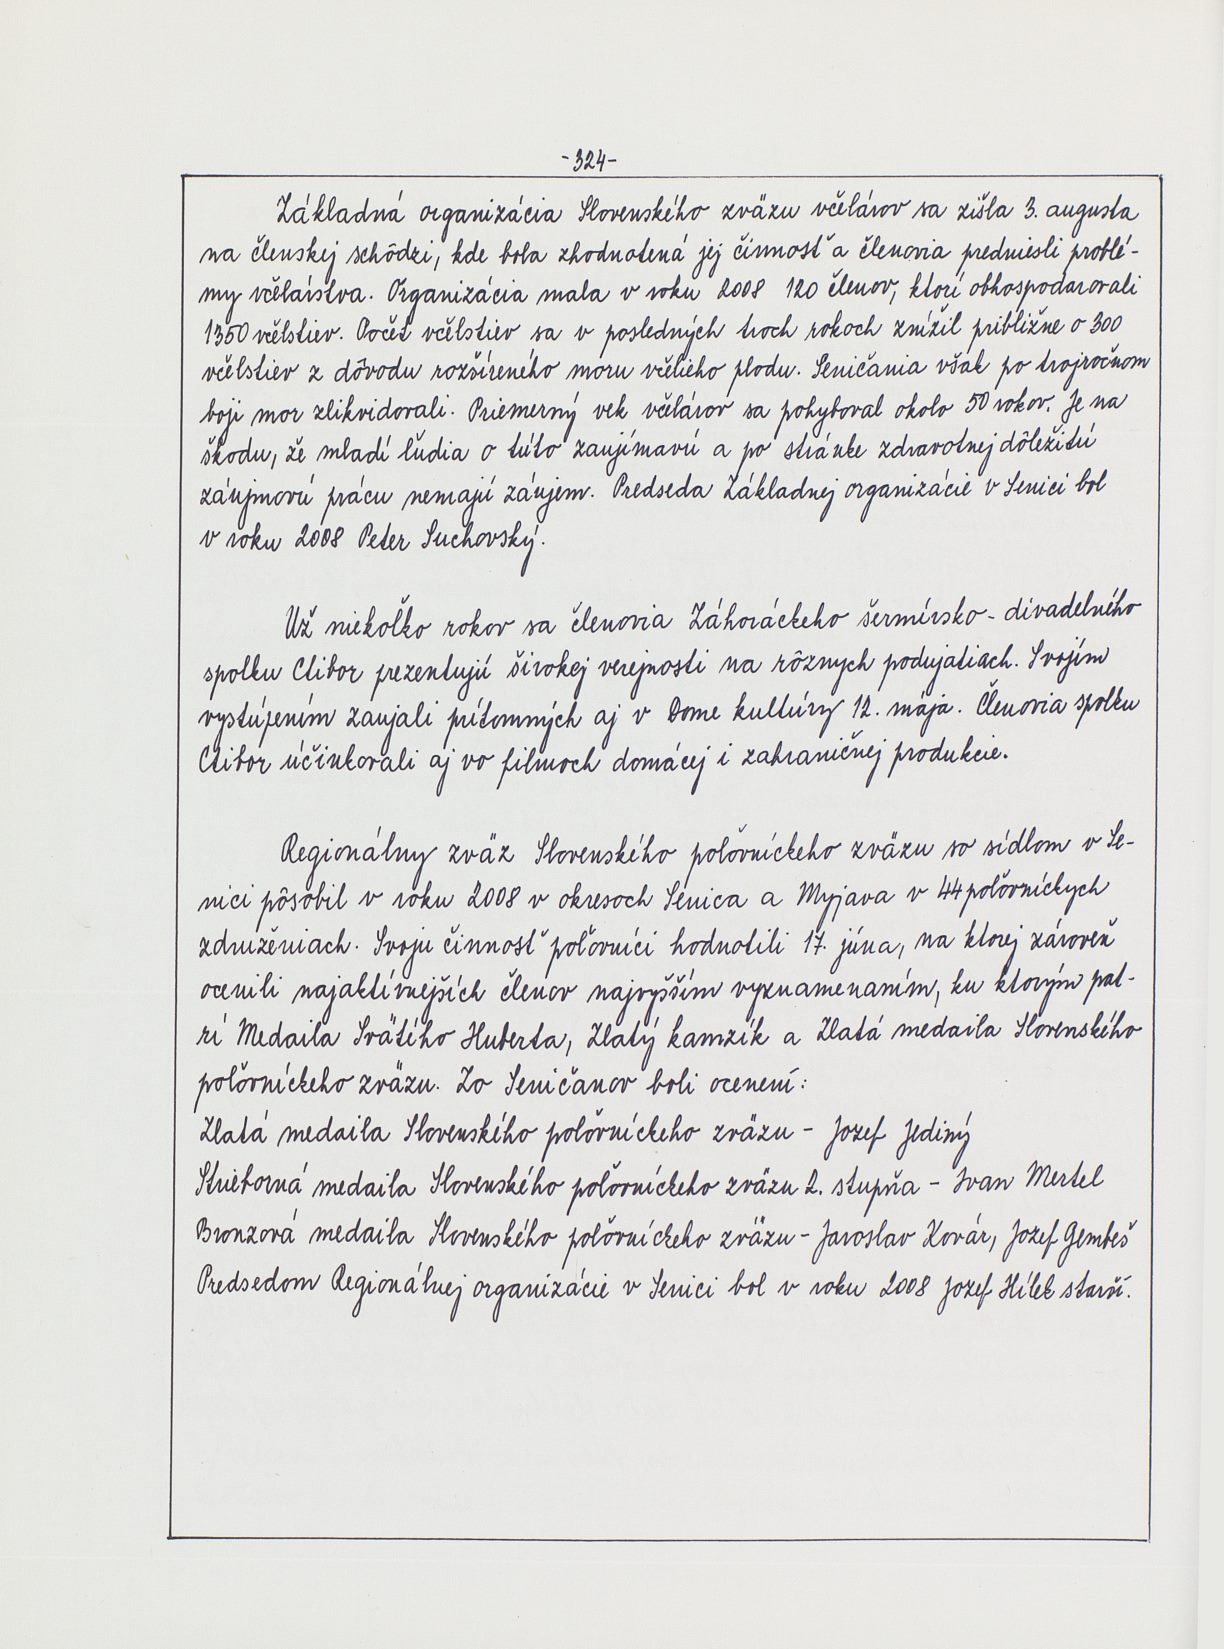 -324-
Základná organizácia Slovenského zväzu včelárov sa zišla 3. augusta
na členskej schôdzi, kde bola zhodnotená jej činnosť a členovia predniesli problé-
my včelárstva. Organizácia mala v roku 2008 120 členov, ktorí obhospodarovali
1350 včelstiev. Počet včelstiev sa v posledných troch rokoch znížil približne o 300
včelstiev z dôvodu rozšíreného moru včelieho plodu. Seničania však po trojročnom
boji mor zlikvidovali. Priemerný vek včelárov sa pohyboval okolo 50 rokov. Je na
škodu, že mladí ľudia o túto zaujímavú a po stránke zdravotnej dôležitú
záujmovú prácu nemajú záujem. Predseda Základnej organizácie v Senici bol
v roku 2008 Peter Suchovský.
Už niekoľko rokov sa členovia Záhoráckeho šermírsko-divadelného
spolku Ctibor prezentujú širokej verejnosti na rôznych podujatiach. Svojím
vystúpením zaujali prítomných aj v Dome kultúry 12. mája. Členovia spolku
Ctibor účinkovali aj vo filmoch domácej i zahraničnej produkcie.
Regionálny zväz Slovenského poľovníckeho zväzu so sídlom v Se-
nici pôsobil v roku 2008 v okresoch Senica a Myjava v 44 poľovníckych
združeniach. Svoju činnosť poľovníci hodnotili 17. júna, na ktorej zároveň
ocenili najaktívnejších členov najvyšším vyznamenaním, ku ktorým pat-
rí Medaila Svätého Huberta, Zlatý kamzík a Zlatá medaila Slovenského
poľovníckeho zväzu. Zo Seničanov boli ocenení:
Zlatá medaila Slovenského poľovníckeho zväzu - Jozef Jediný
Strieborná medaila Slovenského poľovníckeho zväzu 2. stupňa - Ivan Mertel
Bronzová medaila Slovenského poľovníckeho zväzu - Jaroslav Kovár, Jozef Gembeš
Predsedom Regionálnej organizácie v Senici bol v roku 2008 Jozef Hílek starší.